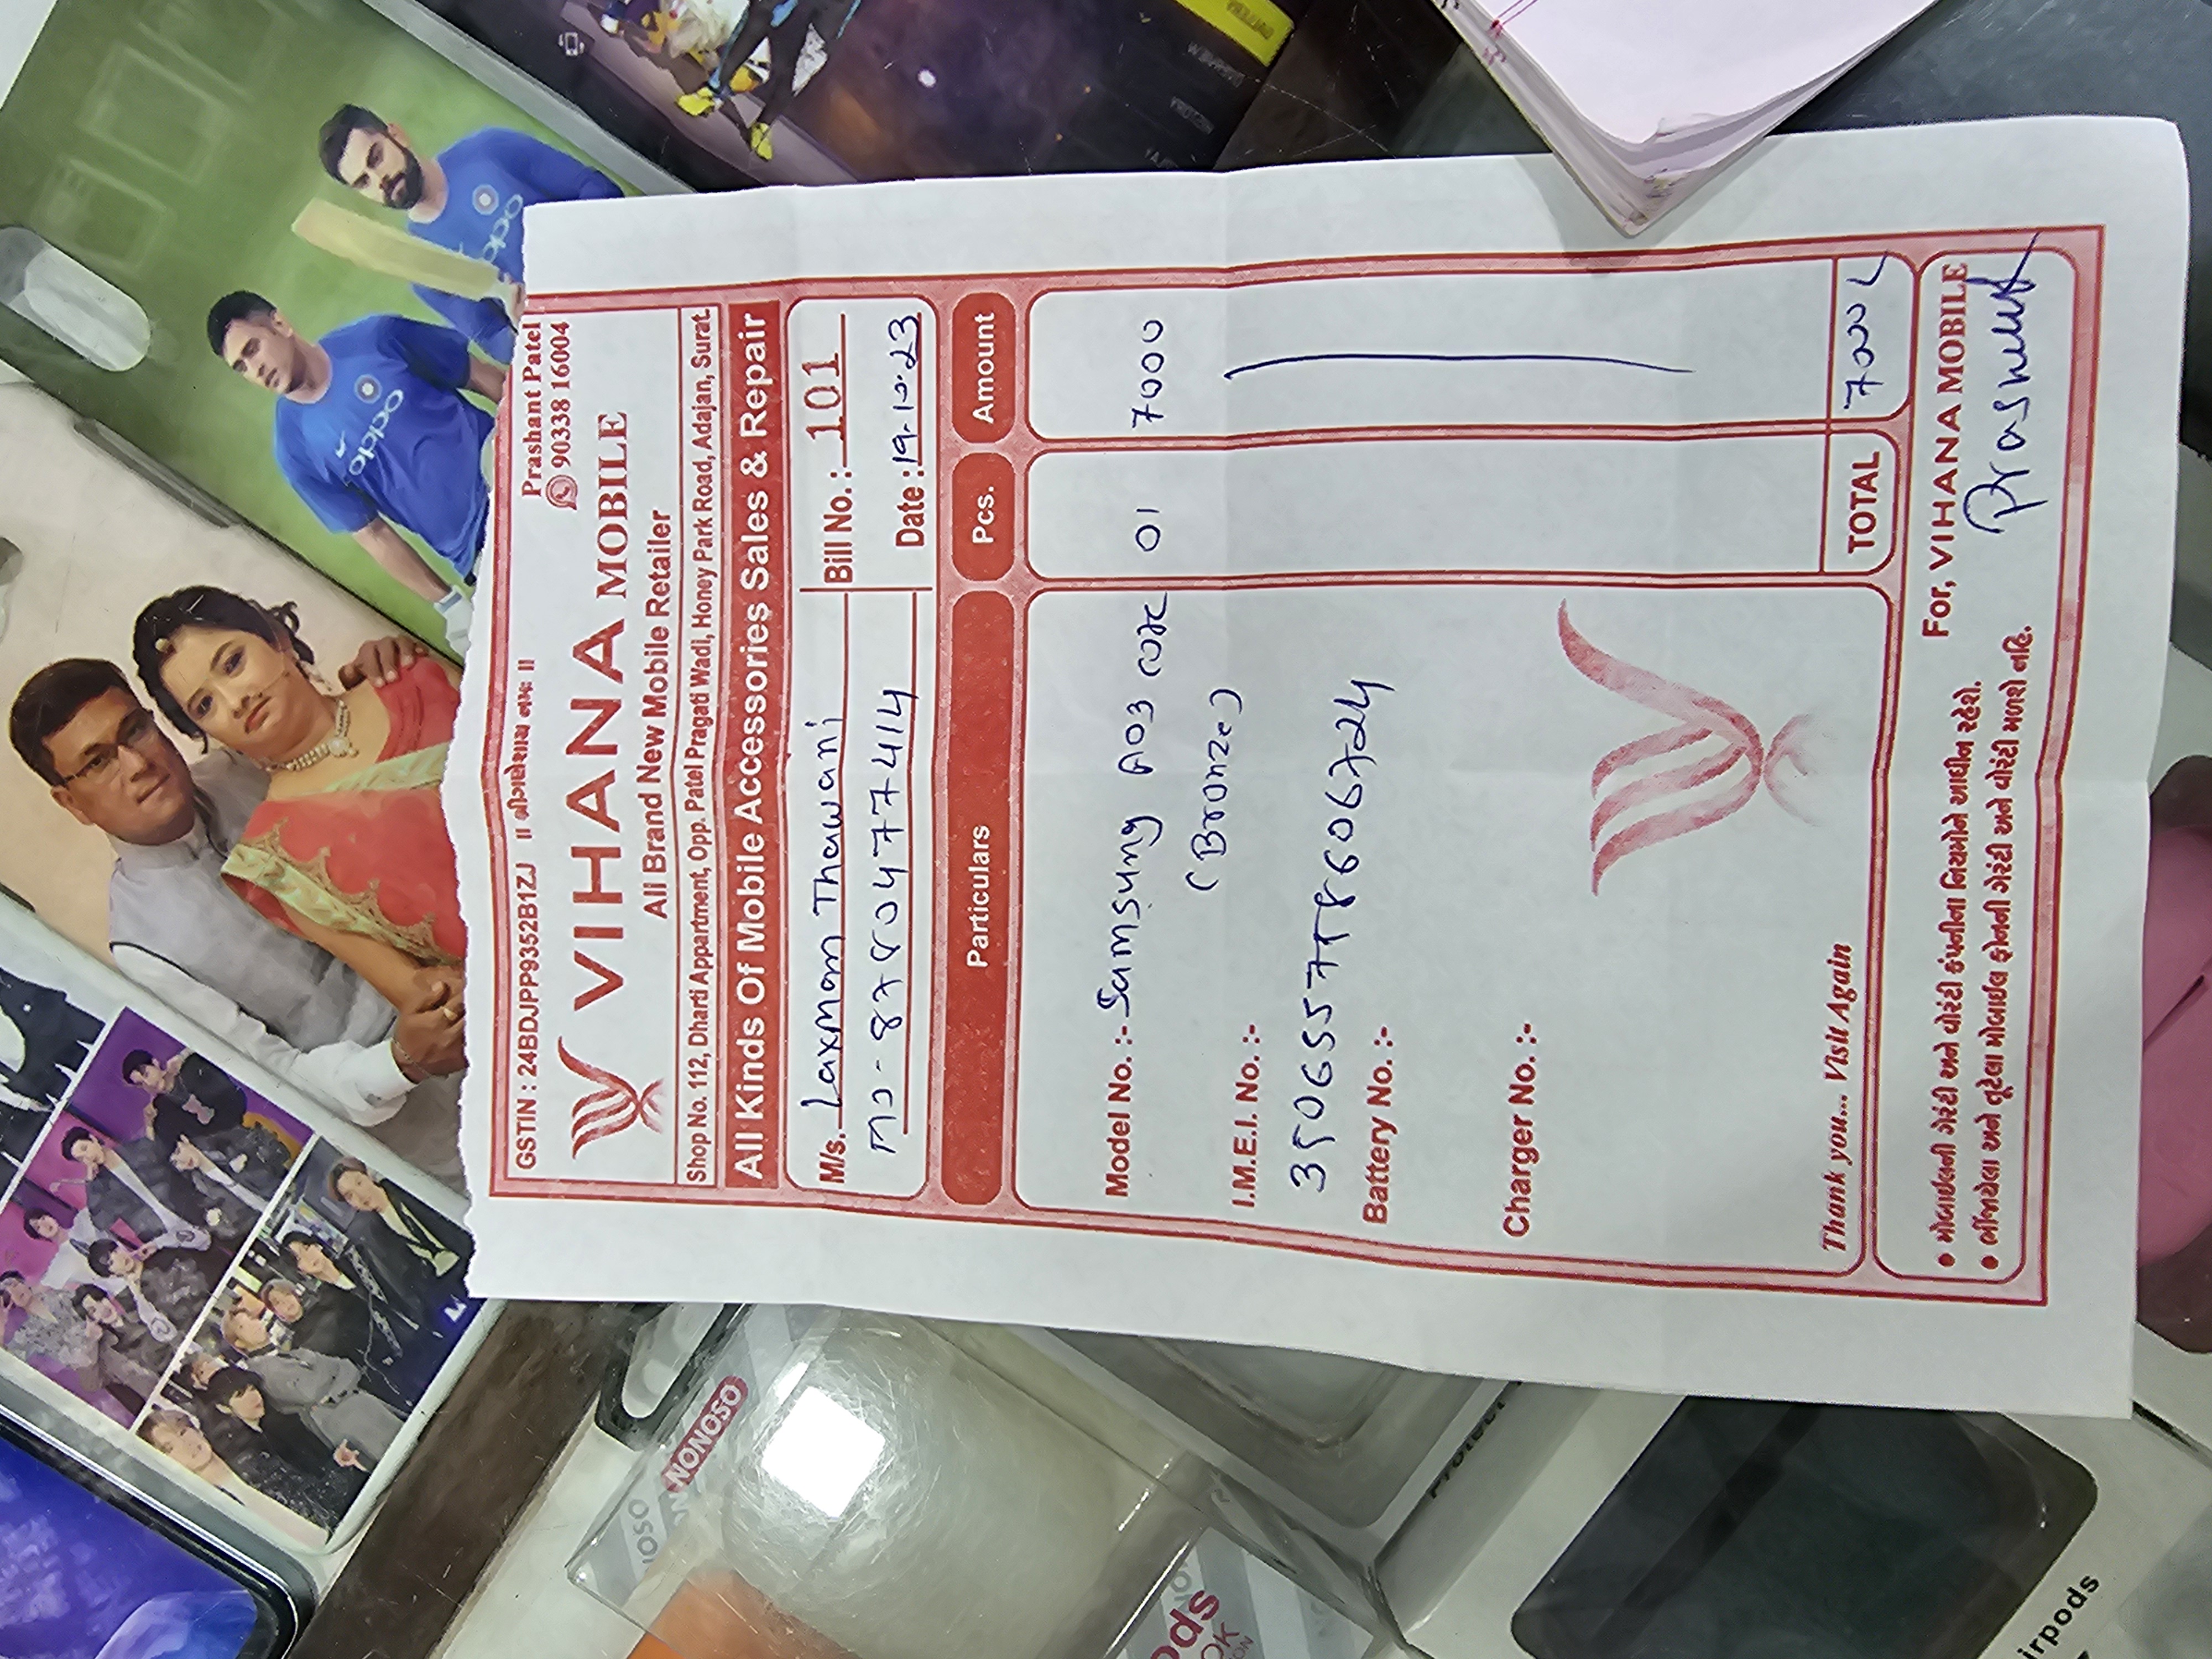 GSTIN : 24BDJPP9352B1ZJ
॥ શ્રીગણેશાય નમઃ ॥
Prashant Patel
90338 16004
VIHANA MOBILE
All Brand New Mobile Retailer
Shop No. 112, Dharti Appartment, Opp. Patel Pragati Wadi, Honey Park Road, Adajan, Surat.
All Kinds Of Mobile Accessories Sales & Repair
M/s. Laxman Thawani
Mo - 8780477414
Bill No. : 101
Date : 19-10-23
Particulars Pcs. Amount
Model No. :- Samsung A03 core 01 7000
(Bronze)
I.M.E.I. No. :-
350655758606724
Battery No. :-
Charger No. :-
Thank you... Visit Again
TOTAL 7000
For, VIHANA MOBILE
• મોબાઈલની ગેરંટી અને વોરંટી કંપનીના નિયમોને આધીન રહેશે.
• ભીંજાયેલા અને તૂટેલા મોબાઈલ ફોનની ગેરંટી અને વોરંટી મળશે નહિ.
oppo
oppo
NONOSO
irpods